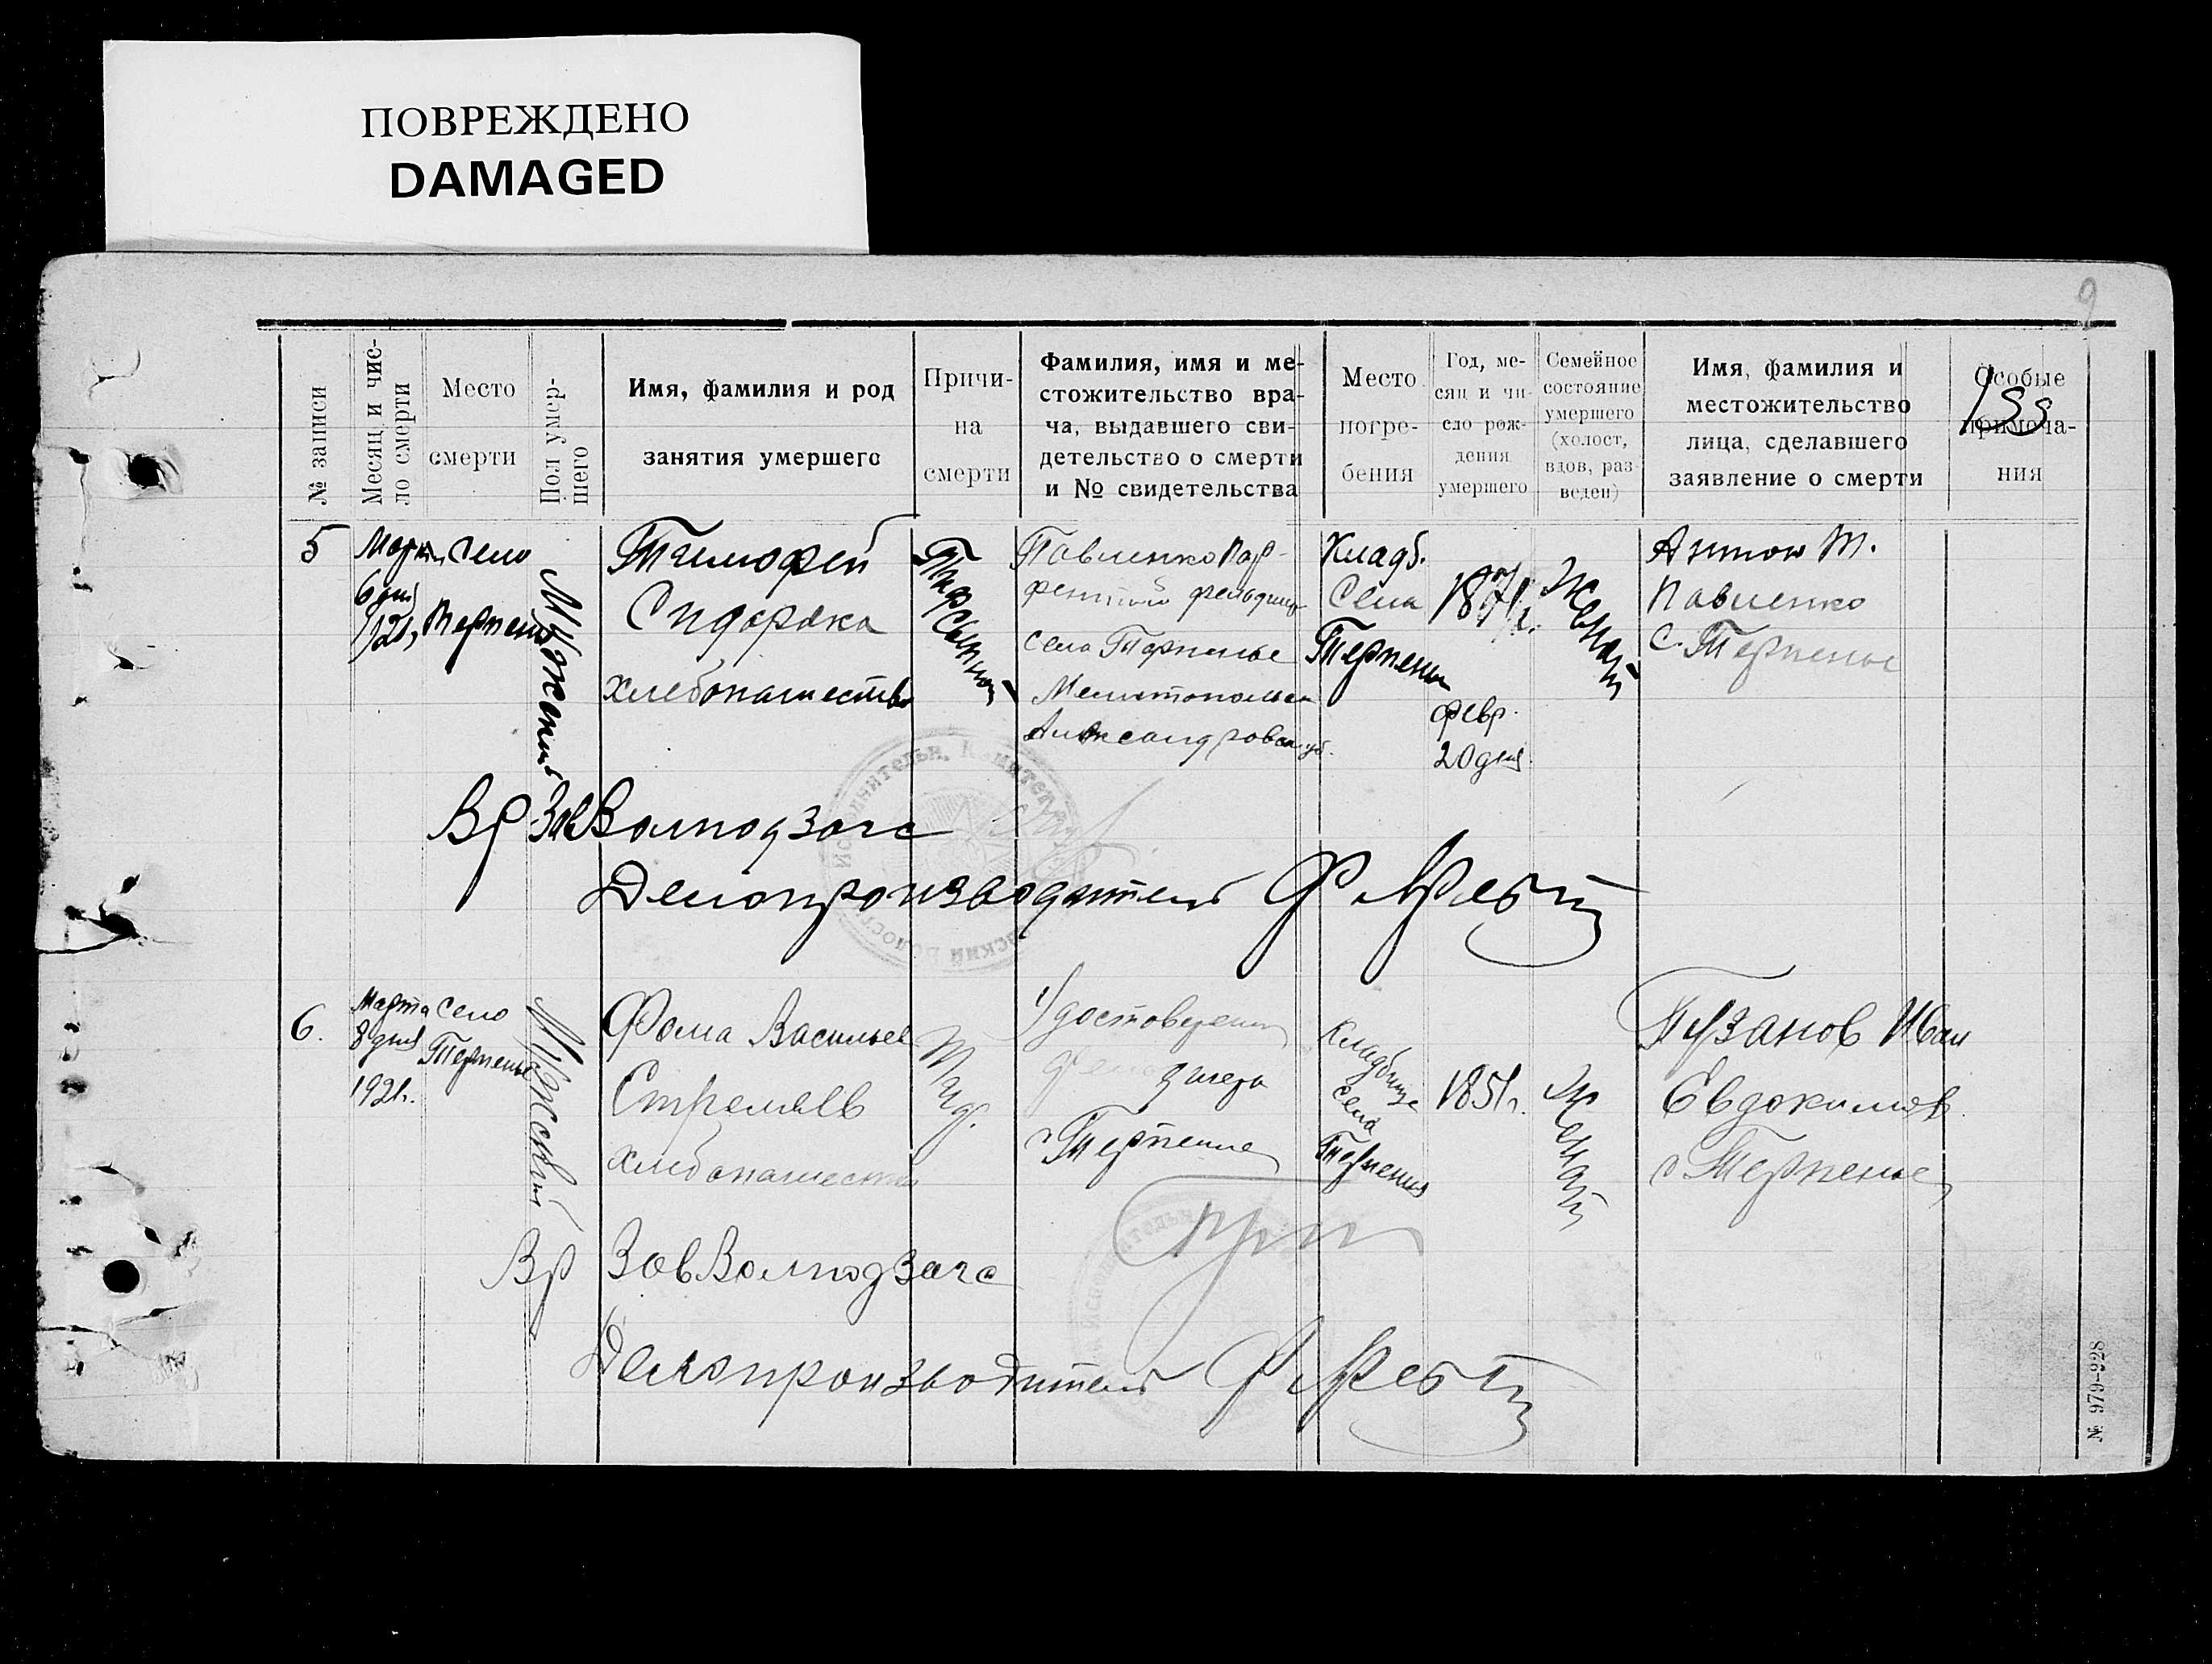 ПОВРЕЖДЕНО
DAMAGED
9
№ записи
Месяц и чис-
ло смерти
Место
смерти
Пол умер-
шего
Имя, фамилия и род
занятия умершего
Причи-
на
смерти
Фамилия, имя и ме-
стожительство вра-
ча, выдавшего сви-
детельство о смерти
и № свидетельства
Место
погре-
бения
Год, ме-
сяц и чи-
сло рож-
дения
умершего
Семейное
состояние
умершего
(холост,
вдов, раз-
веден)
Имя, фамилия и
местожительство
лица, сделавшего
заявление о смерти
Особые
примеча-
ния
5
Марта
6 дня
Село
Терпенье
Мужской
Тимофей
Сидорака
хлебопашество
Тиф сыпной
Павленко
села Терпенье
Мелитопольск
Александровск губ.
Кладб.
Села
Терпенья
1871г.
февр.
20 дня
Женат
Антон Т.
Павленко
с. Терпенье
Вр Зав Волподзагса
Делопроизводитель
6.
Марта
8 дня
1921г.
Село
Терпенье
Мужской
Фома Васильев
Стреляев
хлебопашество
Тиф.
Удостоверение
с Терпение
Кладбище
села
Терпенья
1851г.
Женат
Пузанов Иван
Евдокимов
с Терпенье
Вр Зав Волподзагса
Делопроизводитель
№ 979-228